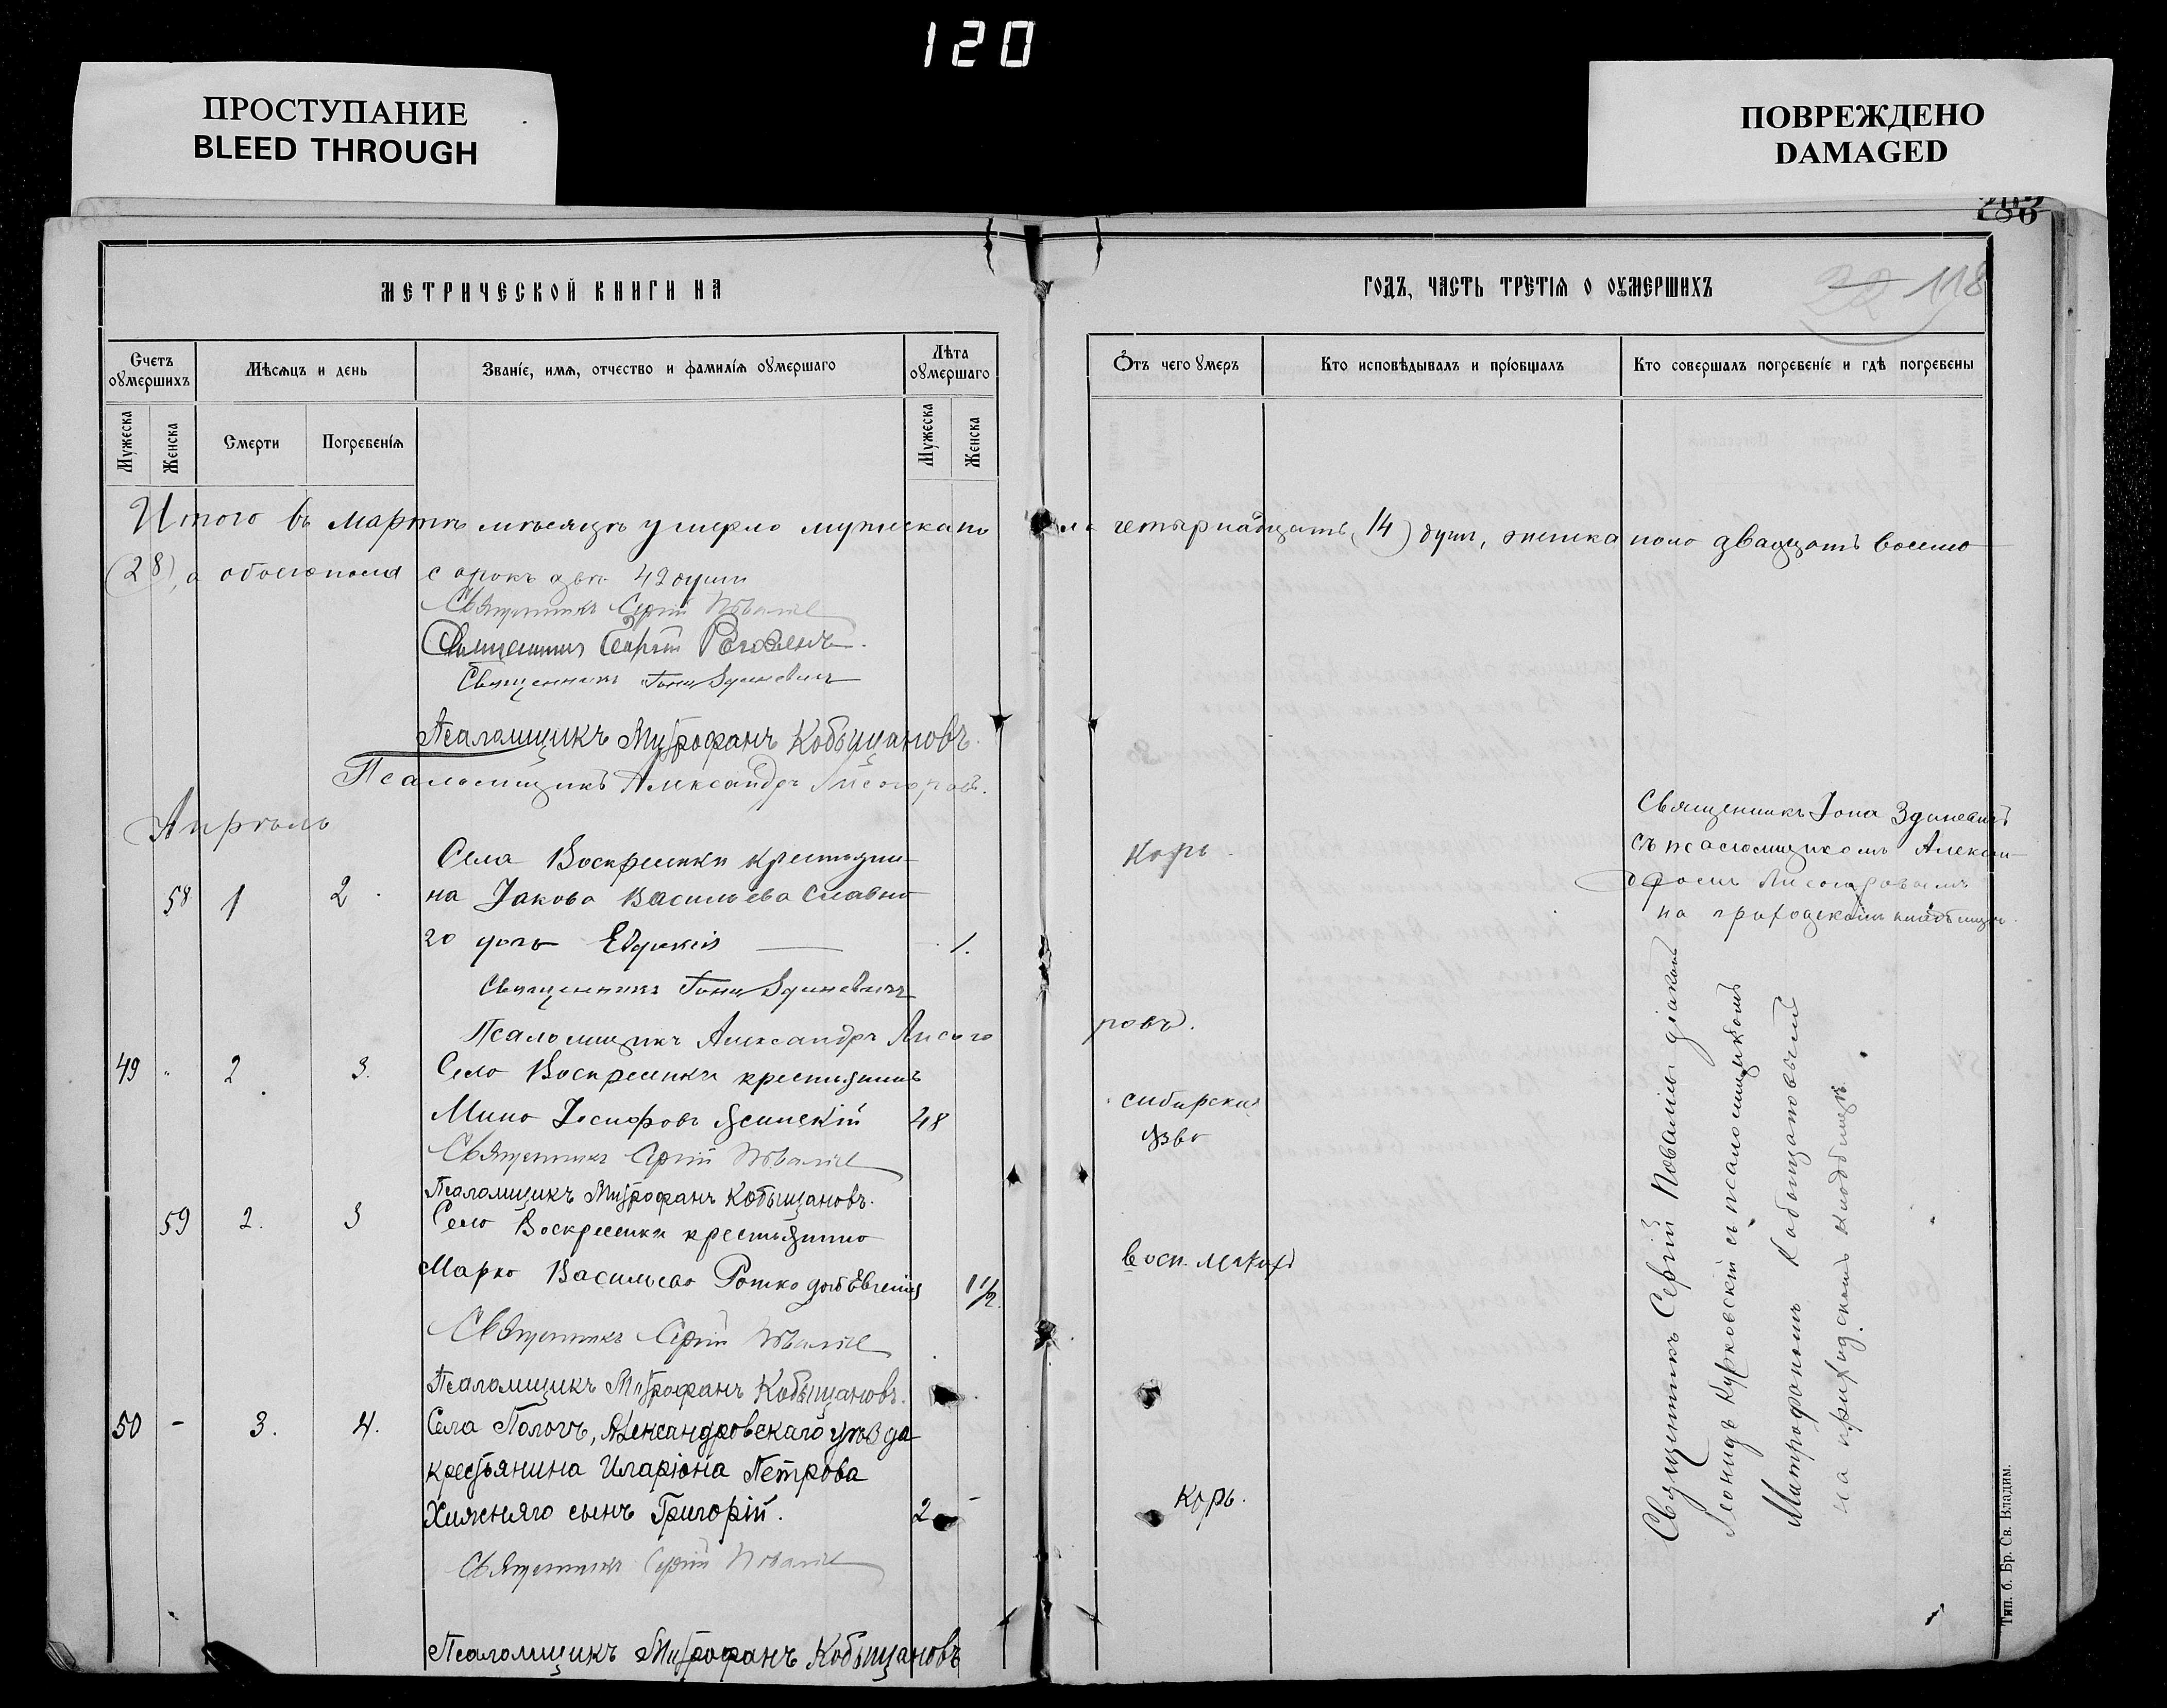 120
ПРОСТУПАНИЕ
BLEED THROUGH
ПОВРЕЖДЕНО
DAMAGED
186
МЕТРИЧЕСКОЙ КНИГИ НА
ГОДЪ, ЧАСТЬ ТРЕТІЯ О ОУМЕРШИХЪ
118
Счетъ оумершихъ
Мѣсяцъ и день
Званіе, имя, отчество и фамилія оумершаго
Лѣта оумершаго
Отъ чего умеръ
Кто исповѣдывалъ и пріобщалъ
Кто совершалъ погребеніе и гдѣ погребены
Мужеска
Женска
Смерти
Погребенія
Мужеска
Женска
Итого въ Мартѣ мѣсяцѣ умерло мужска по ла четырнадцать (14) душъ, женска пола двадцать восемь
(28), а обоего пола сорокъ две 42 души
Священникъ Сергій
Священникъ Георгій
Священникъ Іона Здиневичъ
Псаломщикъ Митрофанъ Кобыщановъ.
Псаломщикъ Александръ Лисогоровъ.
Апрѣль
58 1 2
Села Воскресенки крестьяни
на Іакова Васильева Славно
го дочь Евдокія 1.
Корь
Священникъ Іона Здиневичъ
съ псаломщикомъ Алексан
дромъ Лисогоровымъ
на приходскомъ кладбищѣ.
Священникъ Іона Здиневичъ
Псаломщикъ Александръ Лисого
ровъ.
49 " 2 3.
Село Воскресенки крестьянинъ
Мина Іосифовъ Ясинскій 48
сибирская
язва
Священникъ Сергій
Псаломщикъ Митрофанъ Кобыщановъ.
59 2. 3
Село Воскресенки крестьянина
Марка Васильева Рошко дочь Евгенія 1 1/2.
восп. легких
Священникъ Сергій
Псаломщикъ Митрофанъ Кобыщановъ.
50 - 3. 4.
Села Пологъ, Александровскаго уѣзда
крестьянина Иларіона Петрова
Хижняго сынъ Григорій. 2 -
Корь.
Священникъ Сергій
Псаломщикъ Митрофанъ Кобыщановъ
Священникъ Сергій діакономъ
Леонидъ Курковскій съ псаломщикомъ
Митрофаномъ Кобыщановымъ
на приходскомъ кладбищѣ.
Тип. б. Бр. Св. Владим.